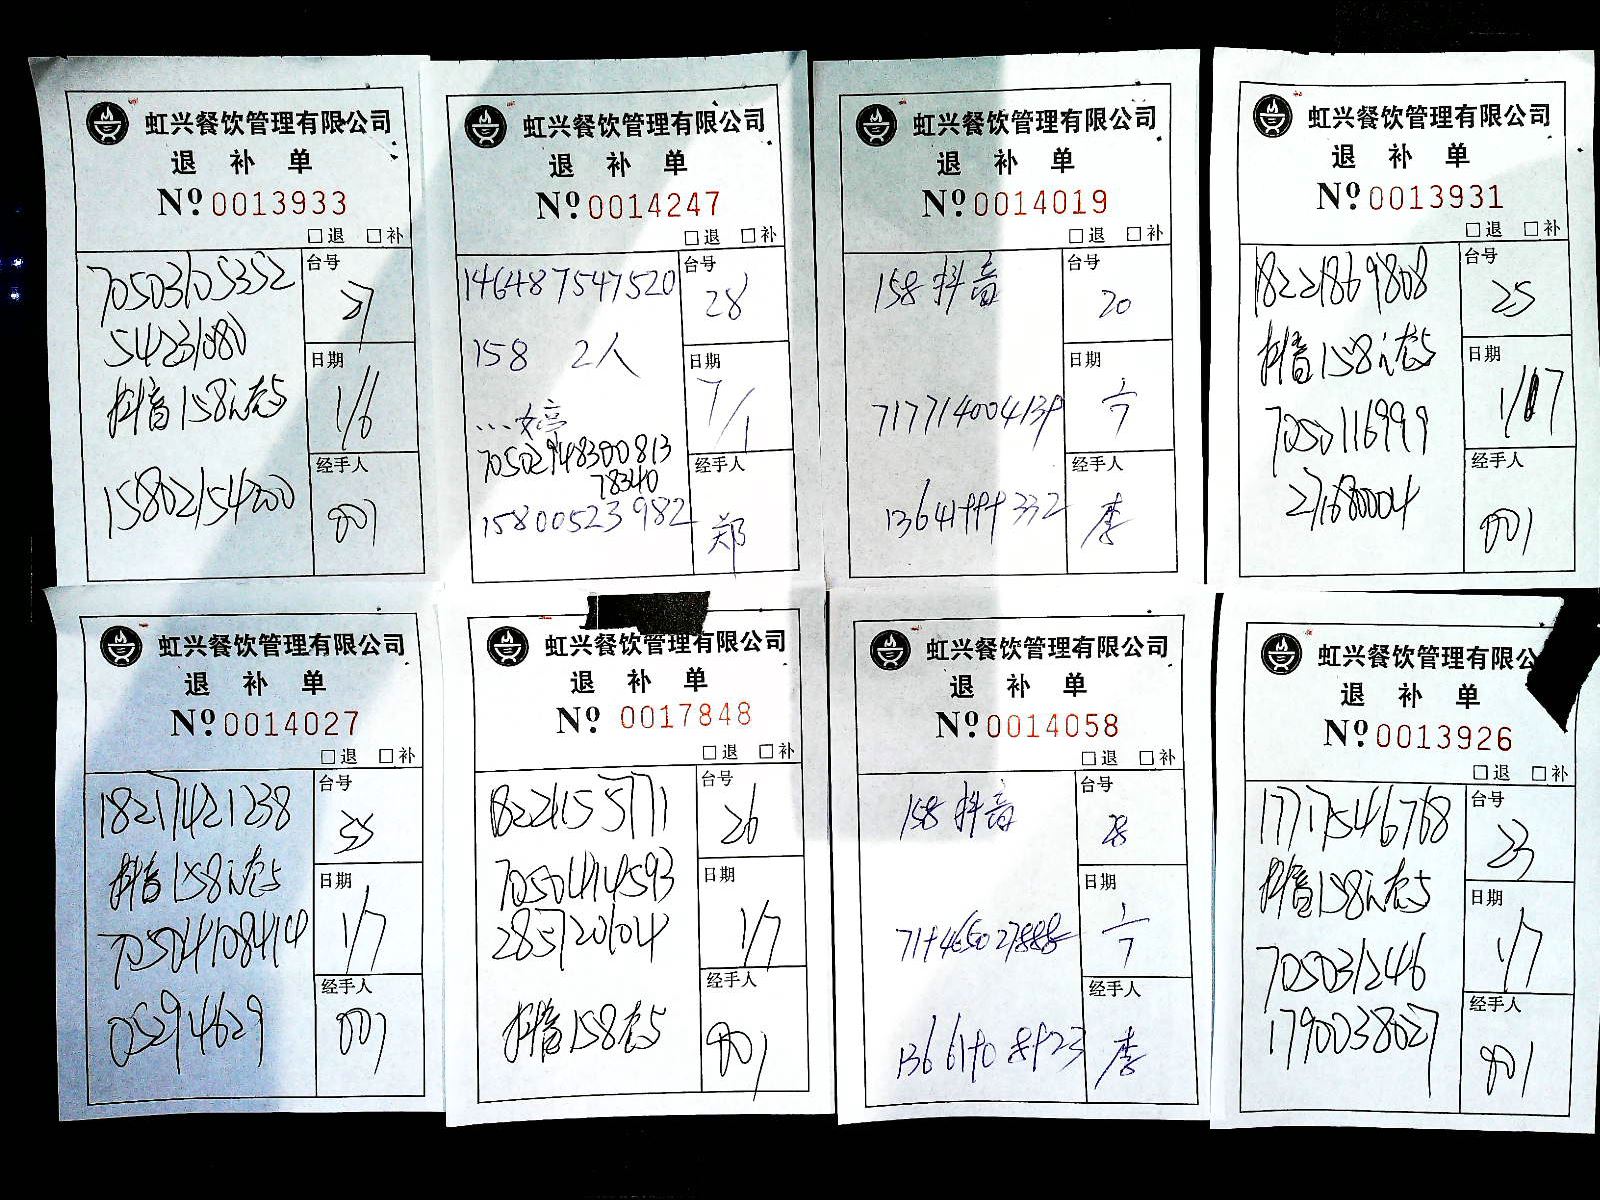 虹兴餐饮管理有限公司
退 补 单
Nº 0013933
□退 □补
70503105352
54231080
抖音158
15802154200
台号
27
日期
1/6
经手人
001
虹兴餐饮管理有限公司
退 补 单
Nº 0014247
□退 □补
146487547520
158 2人
...婷
70502948300813
78340
15800523982
台号
28
日期
7/1
经手人
郑
虹兴餐饮管理有限公司
退 补 单
Nº 0014019
□退 □补
158 抖音
台号
20
日期
1/7
经手人
李
虹兴餐饮管理有限公司
退 补 单
Nº 0013931
□退 □补
18221869808
抖音158
7050116999
271680004
台号
25
日期
经手人
001
虹兴餐饮管理有限公司
退 补 单
Nº 0014027
□退 □补
18217421238
抖音158
705041108414
05294629
台号
35
日期
1/7
经手人
001
虹兴餐饮管理有限公司
退 补 单
Nº 0017848
□退 □补
18221555771
70504414593
285720604
抖音158
台号
26
日期
1/7
经手人
001
虹兴餐饮管理有限公司
退 补 单
Nº 0014058
□退 □补
158 抖音
台号
28
日期
1/7
经手人
李
虹兴餐饮管理有限公
退 补 单
Nº 0013926
□退 □补
17717546768
抖音158
705031246
1790038027
台号
23
日期
1/7
经手人
001